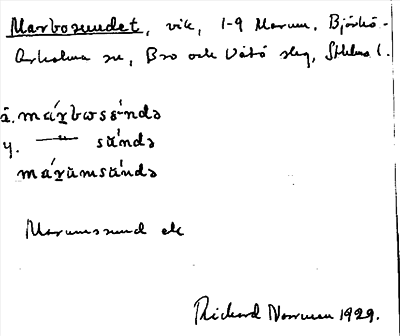 Marbosundet, vik, 1-9 Marum, Björkö-
Arholma sn, Bro och Vätö slg, Sthlms l.
ä. márbωssúndə
y. —"— sŭ́ndə
márŭmsŭ́ndə
Marumssund etc
Rickard Norrman 1929.